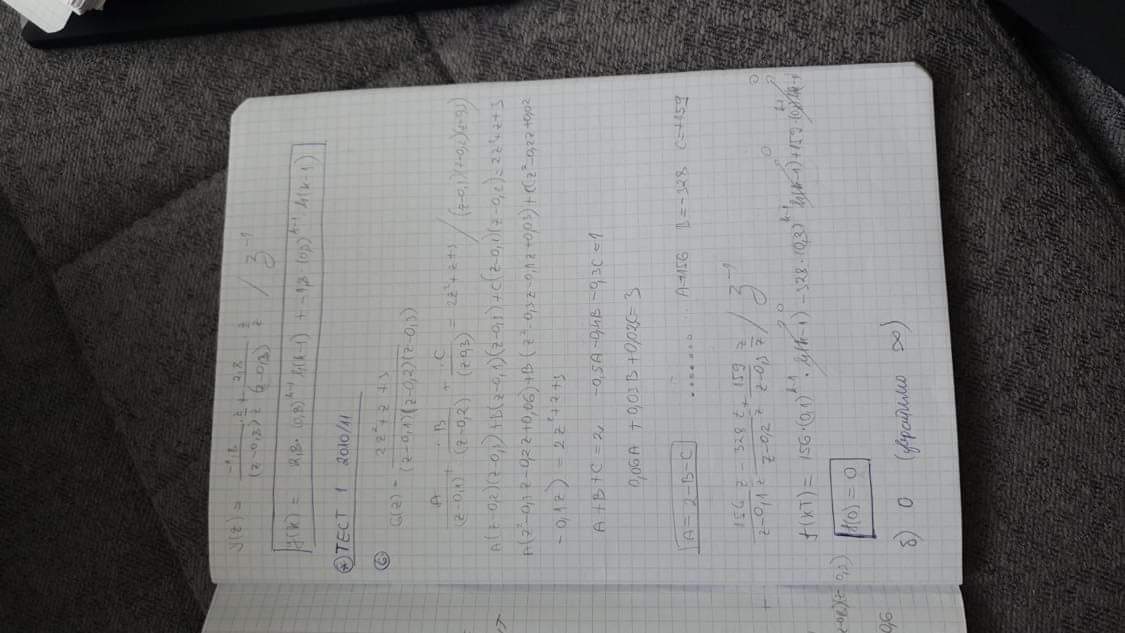 y(z) = -1,8/(z-0,3) · z/z + 2,8/(z-0,8) · z/z / Z⁻¹
y(k) = 2,8 · (0,8)ᵏ⁻¹ h(k-1) + -1,8 (0,3)ᵏ⁻¹ h(k-1)
* ТЕСТ 1 2010/11
6
G(z) = (2z² + z + 3)/((z-0,1)(z-0,2)(z-0,3))
A/(z-0,1) + B/(z-0,2) + C/(z-0,3) = 2z²+z+3 / (z-0,1)(z-0,2)(z-0,3)
A(z-0,2)(z-0,3)+B(z-0,1)(z-0,3)+C(z-0,1)(z-0,2)=2z²+z+3
A(z²-0,3z-0,2z+0,06)+B(z²-0,3z-0,1z+0,03)+C(z²-0,2z+0,02
-0,1z) = 2z²+z+3
A+B+C = 2 -0,5A-0,4B-0,3C=1
0,06A + 0,03B+0,02C=3
A=2-B-C ....... A=156 B=-328 C=+159
156/(z-0,1) z/z - 328/(z-0,2) z/z + 159/(z-0,3) z/z / Z⁻¹
f(kT) = 156·(0,1)ᵏ⁻¹ · h(k-1) - 328·(0,3)ᵏ⁻¹ h(k-1)+159
f(0) = 0
δ) 0 (уврстимо ∞)
0,6